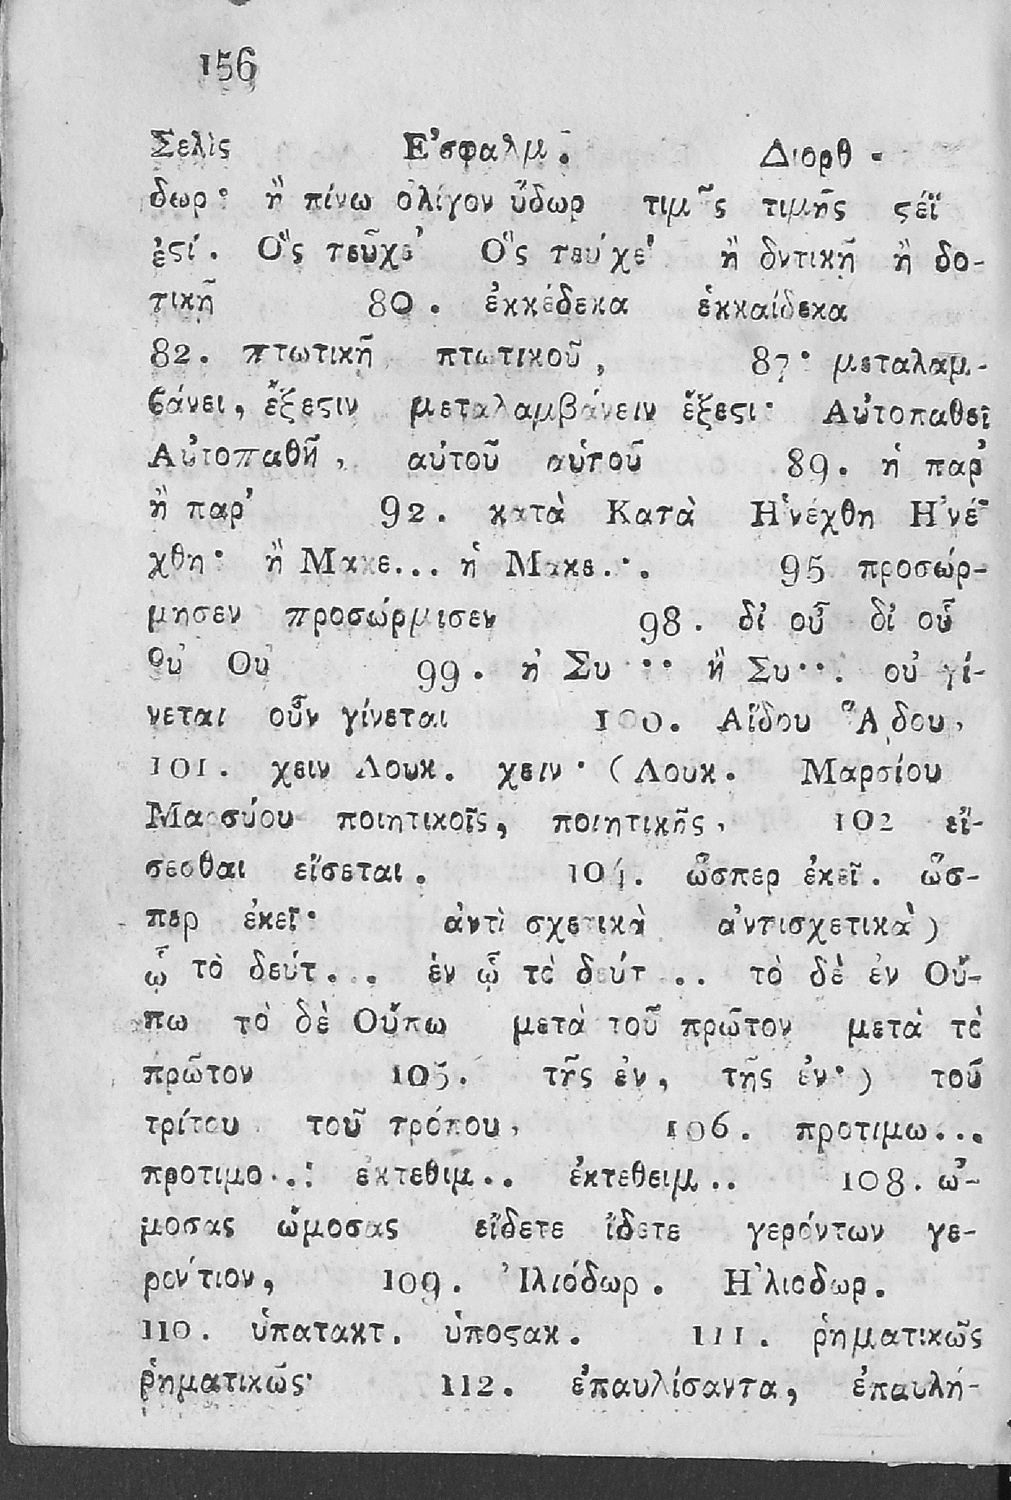 156
Σελὶς Ε᾿σφαλμ. Διορθ.
δωρ· ἢ πίνω ὀλίγον ὕδωρ τιμ῀ς τιμῆς ϛέϊ
ἐϛί. Ο῝ς τεῦχε᾿ Ο῝ς τεύχε᾿ ἢ δντικῆ ἢ δο-
τικῆ 80. ἐκκέδεκα ἑκκαίδεκα
82. πτωτικῆ πτωτικοῦ, 87· μεταλαμ-
ϐάνει, ἔξεϛιν μεταλαμβάνειν ἔξεϛι· Αὐτοπαθεῖ
Αὐτοπαθῆ, αὐτοῦ αὑτοῦ 89. ἡ παρ᾿
ἢ παρ᾿ 92. κατὰ Κατὰ Η῾νέχθη Η᾿νέ-
χθη· ἢ Μακε... ἡ Μακε... 95 προσώρ-
μησεν προσώρμισεν 98. δἰ οὗ δἰ οὗ
οὐ Οὐ 99. ἡ Συ ·· ἢ Συ··. οὐ γί-
νεται οὖν γίνεται 100. Αἵδου ῞Αδου,
101. χειν Λουκ. χειν· (Λουκ. Μαρσίου
Μαρσύου ποιητικοῖς, ποιητικῆς, 102 εἴ-
σεσθαι εἴσεται. 104. ὥσπερ ἐκεῖ. ὥσ-
περ ἐκεῖ· ἀντὶ σχετικὰ ἀντισχετικὰ)
ᾧ τὸ δεύτ... ἐν ᾧ τὸ δεύτ .. τὸ δὲ ἐν Οὔ-
πω τὸ δὲ Οὔπω μετὰ τοῦ πρῶτον μετὰ τὸ
πρῶτον 105. τῆς ἐν, τῆς ἐν·) τοῦ
τρίτου τοῦ τρόπου, 106. προτιμω...
προτιμο..: ἐκτεθιμ.. ἐκτεθειμ.. 108. ὠ-
μοσας ὤμοσας εἴδετε ἴδετε γερόντων γε-
ροντίον, 109. ᾿Ιλιόδωρ. Η῾λιοδωρ.
110. ὑπατακτ. ὑποϛακ. 111. ῥηματικῶς
ῥηματικῶς· 112. ἐπαυλίσαντα, ἐπαυλή-